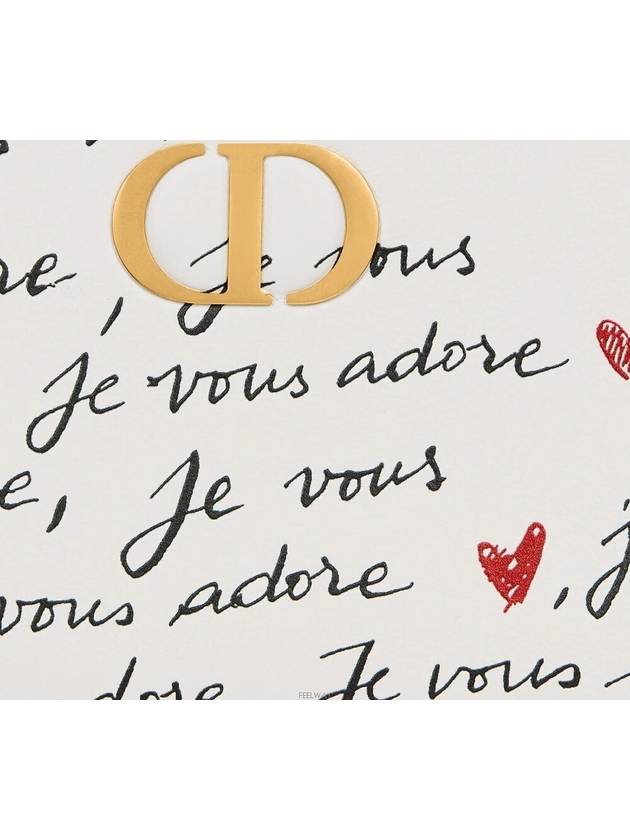 CD
re, je vous
Je vous adore
e, Je vous
vous adore , j
dore Je vous